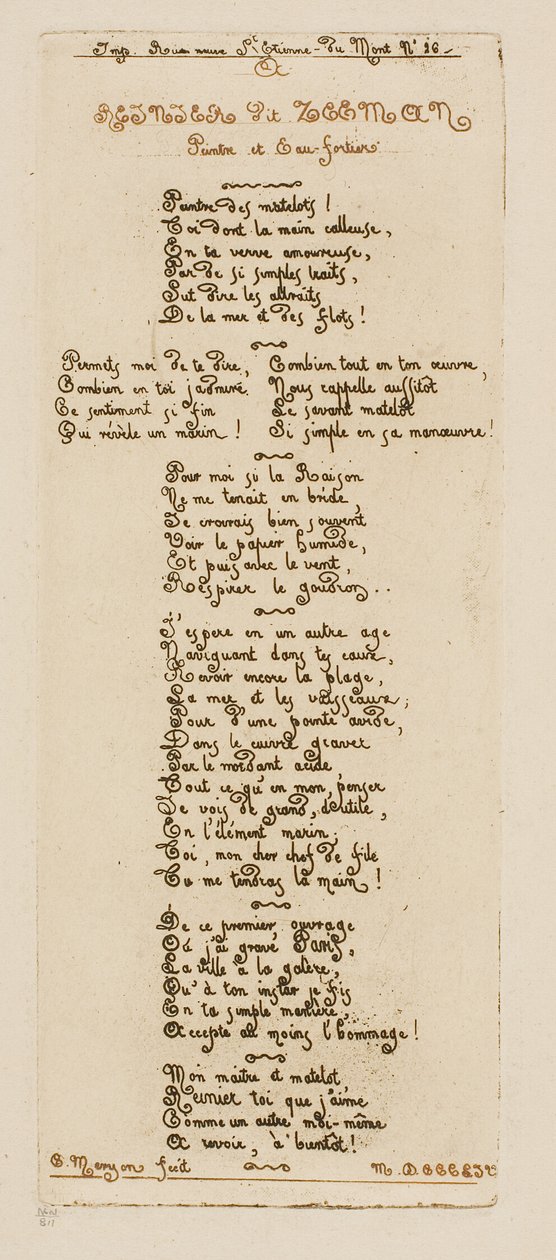 Imp. Rue neuve St Etienne-du Mont N° 26-
A
REINIER dit ZEEMAN
Peintre et Eau-fortier.
Peintre des matelots !
Toi dont la main calleuse,
En ta verve amoureuse,
Par de si simples traits,
Sut dire les attraits
De la mer et des flots !
Permets moi de te dire,
Combien en toi j'admire
Ce sentiment si fin
Qui révèle un marin !
Combien tout en ton œuvre,
Nous rappelle aussitôt
Le savant matelot
Si simple en sa manœuvre !
Pour moi si la Raison
Ne me tenait en bride,
Je croirais bien souvent
Voir le papier humide,
Et puis avec le vent,
Respirer le goudron . .
J'espere en un autre age
Naviguant dans tes eaux,
Revoir encore la plage,
La mer et les vaisseaux ;
Pour d'une pointe avide,
Dans le cuivre graver
Par le mordant acide
Tout ce qu'en mon, penser
Je vois de grand, d'utile,
En l'élément marin ;
Toi, mon cher chef de file
Tu me tendras la main !
De ce premier, ouvrage
Où j'ai gravé Paris,
La ville à la galère,
Qu'à ton instar je fis
En ta simple manière,
Accepte au moins l'hommage !
Mon maitre et matelot,
Reinier toi que j'aime
Comme un autre moi-même
A revoir, à bientôt !
C. Meryon fecit
M. D.CCCLIV